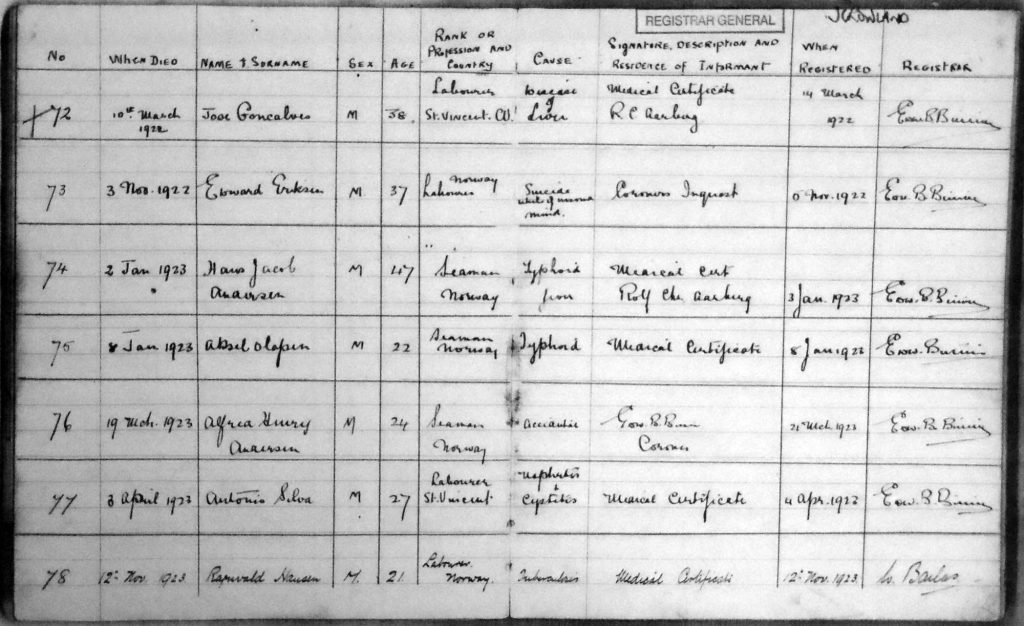 REGISTRAR GENERAL
No WHEN DIED NAME & SURNAME SEX AGE RANK OR PROFESSION AND COUNTRY CAUSE SIGNATURE, DESCRIPTION AND RESIDENCE OF INFORMANT WHEN REGISTERED REGISTRAR
Labourer Disease Medical Certificate 14 March
72 10th March Jose Goncalves M 38 St. Vincent. of Liver 1922
1922
Norway
73 3 Nov. 1922 Edward Eriksen M 37 Labourer Suicide Coroners Inquest Nov. 1922 Edw. B. Binnie
mind.
74 2 Jan 1923 Hans Jacob M 47 Seaman Typhoid Medical Cert
Andersen Norway Rolf Chr. Aarberg 3 Jan. 1923 Edw. B. Binnie
Seaman
75 8 Jan 1923 M 22 Norway Typhoid Medical Certificate 8 Jan 1923 Edw. Binnie
76 19 Mch. 1923 Alfred Henry M 24 Seaman Edw. B. Binnie 21 Mch 1923 Edw. B. Binnie
Andersen Norway Coroner
Labourer Nephritis
77 3 April 1923 Antonio Silva M 27 St. Vincent & Cystitis Medical Certificate 4 Apr. 1923 Edw. B. Binnie
Labourer
78 12th Nov. 1923. Hansen M. 21. Norway. Tuberculosis Medical Certificate 12th Nov. 1923.